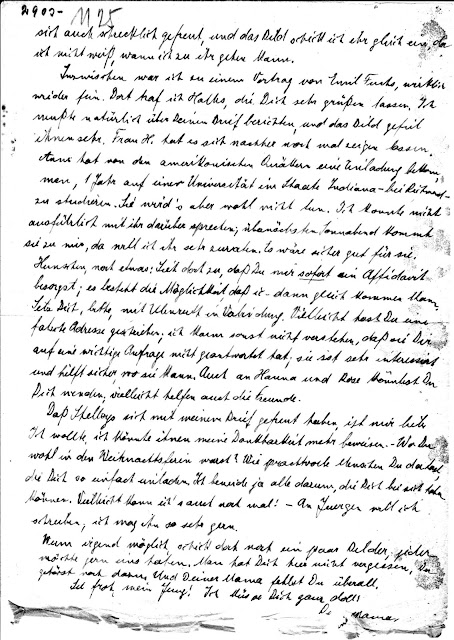 2903-
11 25
sich auch schrecklich gefreut, und das Bild schick ich ihr gleich ein, da
ich nicht weiß wann ich zu ihr gehen kann.
Inzwischen war ich zu einem Vortrag von Emil Fuchs, wirklich
wieder fein. Dort traf ich Halks, die Dich sehr grüßen lassen. Ich
mußte natürlich über Deinen Brief berichten, und das Bild gefiel
ihnen sehr. Frau H. hat es sich nachher noch mal zeigen lassen.
Hans hat von den amerikanischen Quäkern eine Einladung bekom-
men, 1 Jahr auf einer Universität im Staate Indiana - bei
zu studieren. Sie wird's aber wohl nicht tun. Ich konnte nicht
ausführlich mit ihr darüber sprechen; übernächsten Sonnabend kommt
sie zu mir, da will ich ihr sehr zuraten. Es wäre sicher gut für sie.
noch etwas: Sieh doch zu, daß Du mir sofort ein Affidavit
besorgst; es besteht die Möglichkeit, daß ich dann gleich kommen kann.
Setz Dich, bitte, mit in Verbindung. Vielleicht hast Du eine
falsche Adresse geschrieben; ich kann sonst nicht verstehen, daß sie Dir
auf eine wichtige Anfrage nicht geantwortet hat; sie ist sehr interessiert
und hilft sicher wo sie kann. Auch an Hanna und Rose könntest Du
Dich wenden, vielleicht helfen auch die Freunde.
Daß Shelleys sich mit meinem Brief gefreut haben, ist mir lieb.
Ich wollte, ich könnte ihnen meine Dankbarkeit mehr beweisen. - Wo Du
wohl in den Weihnachtsferien warst? Wie prachtvolle Menschen Du da hast,
die Dich so einfach einladen. Ich beneide ja alle darum, die Dich bei sich haben
können. Vielleicht kann ich's auch noch mal! - An Juergen will ich
schreiben, ich mag ihn so sehr gern.
Wenn irgend möglich, schick doch noch ein paar Bilder, jeder
möchte gern eins haben. Man hat Dich hier nicht vergessen, Du
gehörst noch dazu. Und Deiner Mama fehlst Du überall.
Sei froh mein Jung! Ich küsse Dich ganz doll!
Mama